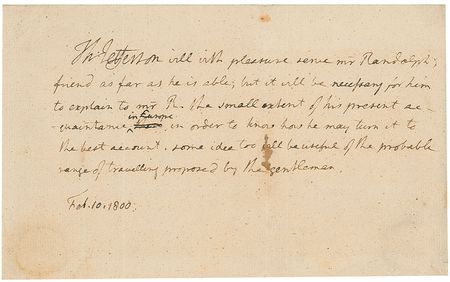 Th: Jefferson will with pleasure serve mr Randolph's
friend as far as he is able; but it will be necessary for him
to explain to mr R. the small extent of his present ac-
quaintance in Europe in order to know how he may turn it to
the best account. some idea too will be useful of the probable
range of travelling proposed by the gentleman.
Feb. 10. 1800.